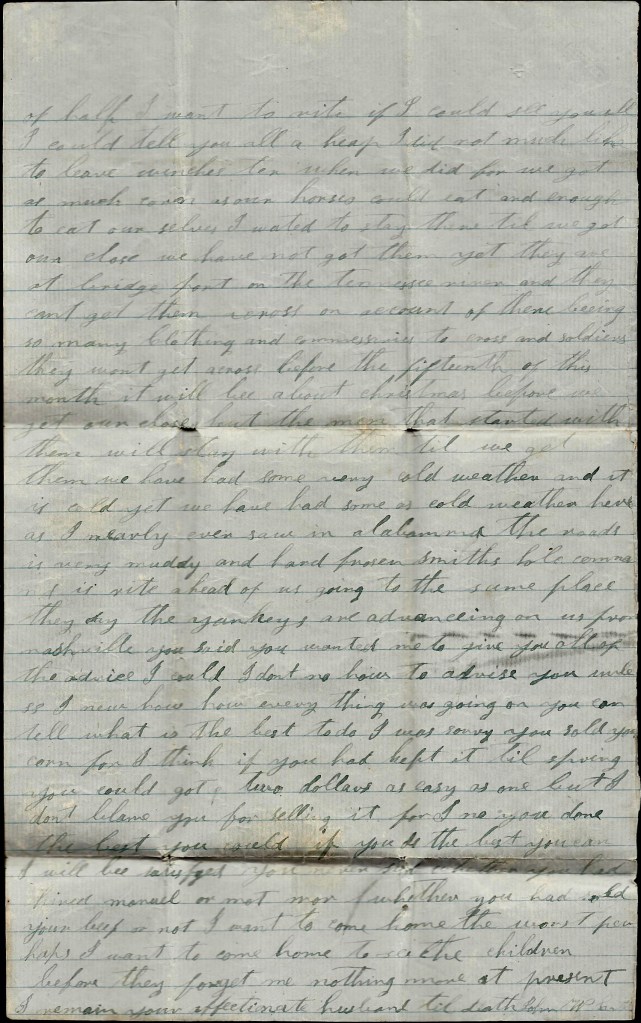 of half I want to rite if I could see you all
I could tell you all a heap I did not much like
to leave winches ter when we did for we got
as much corn as our horses could eat and enough
to eat our selves I wated to stay there til we got
our close we have not got them yet they are
at bridge port on the tennessee river and they
cant get them across on account of there beeing
so many clothing and commissaries to cross and soldiers
they wont get across before the fifteenth of this
month it will bee about christmas before we
get our close but the men that started with
them will stay with them til we get
them we have had some very cold weather and it
is cold yet we have had some as cold weather here
as I nearly ever saw in alabamma the roads
is very muddy and hard frosen smiths hole comma
is rite ahead of us going to the same place
they say the yankeys are advanceing on us from
nashville you said you wanted me to give you all of
the advice I could I dont no how to advise you unle
ss I new how every thing was going on you can
tell what is the best todo I was sorry you sold your
corn for I think if you had kept it til spring
you could got two dollars as easy as one but I
dont blame you for selling it for I no you done
the best you could if you do the best you can
I will bee satisfyed you never said whether you had
hired manuel or not nor whether you had sold
your beef or not I want to come home the worst per
haps I want to come home to see the children
before they forget me nothing more at present
I remain your affectinate husband til death John W